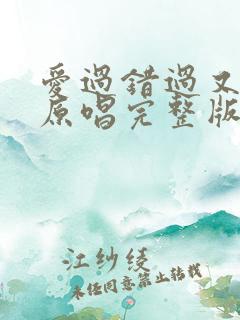 愛過錯過又
原唱完整版
江纱绫
未经同意禁止转载